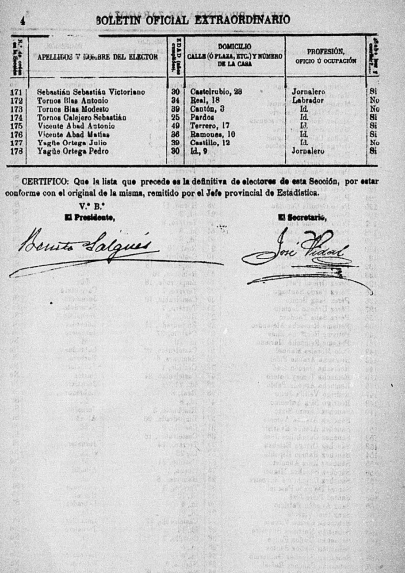 4 BOLETIN OFICIAL EXTRAORDINARIO
APELLIDOS Y NOMBRE DEL ELECTOR
EDAD
DOMICILIO
CALLE (Ó PLAZA, ETC.) Y NÚMERO
DE LA CASA
PROFESIÓN,
OFICIO Ú OCUPACIÓN
171 Sebastián Sebastián Victoriano 30 Castelrubio, 23 Jornalero Si
172 Tornos Blas Antonio 34 Real, 18 Labrador No
173 Tornos Blas Modesto 39 Cantón, 3 Id. No
174 Tornos Calejero Sebastián 25 Pardos Id. Si
175 Vicente Abad Antonio 49 Terrero, 17 Id. Si
176 Vicente Abad Matías 36 Ramones, 10 Id. Si
177 Yagüe Ortega Julio 39 Castillo, 12 Id. No
178 Yagüe Ortega Pedro 30 Id., 9 Jornalero Si
CERTIFICO: Que la lista que precede es la definitiva de electores de esta Sección, por estar
conforme con el original de la misma, remitido por el Jefe provincial de Estadística.
V.º B.º
El Presidente, El Secretario,
Benito José Vidal